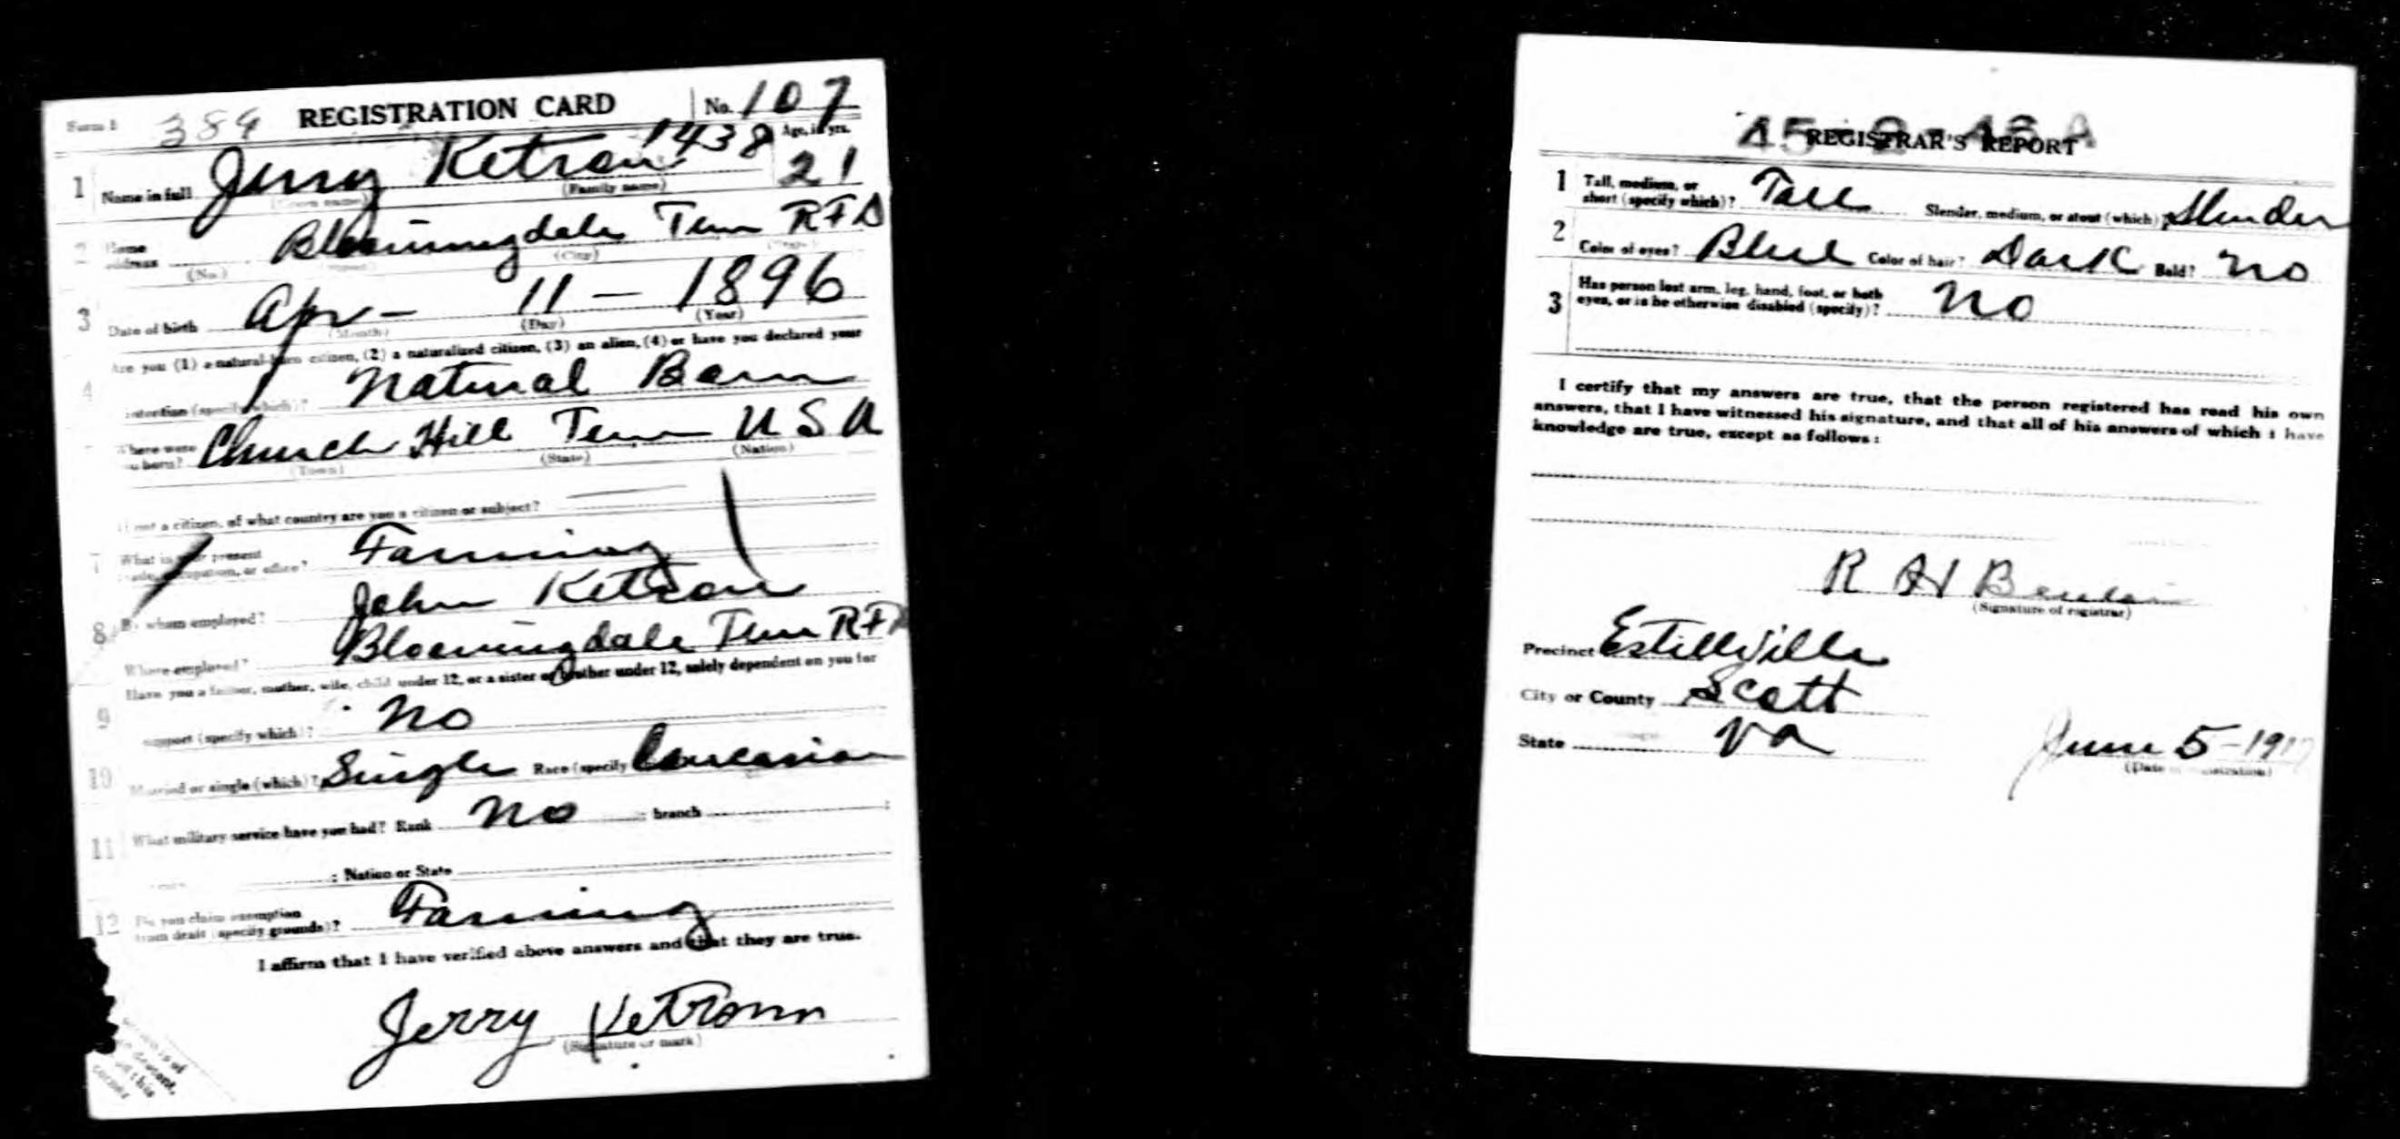 Form 1 384 REGISTRATION CARD No. 107
1438 Age, in yrs.
1 Name in full Jerry Ketron 21
(Given name) (Family name)
2 Home address Bloomingdale Tenn RFD
(No.) (Street) (City) (State)
3 Date of birth Apr - 11 - 1896
(Month) (Day) (Year)
Are you (1) a natural-born citizen, (2) a naturalized citizen, (3) an alien, (4) or have you declared your
4 intention (specify which)? Natural Born
Where were you born? Church Hill Tenn U S A
(Town) (State) (Nation)
If not a citizen, of what country are you a citizen or subject?
7 What is your present trade, occupation, or office? Farming
8 By whom employed? John Ketron
Where employed? Bloomingdale Tenn RFD
Have you a father, mother, wife, child under 12, or a sister or brother under 12, solely dependent on you for
9 support (specify which)? No
10 Married or single (which)? Single Race (specify Caucasian
11 What military service have you had? Rank no ; branch ;
years ; Nation or State
12 Do you claim exemption from draft (specify grounds)? Farming
I affirm that I have verified above answers and that they are true.
Jerry Ketronn
(Signature or mark)
of
descent,
this
corner
REGISTRAR'S REPORT
1 Tall, medium, or short (specify which)? Tall Slender, medium, or stout (which)? Slender
2 Color of eyes? Blue Color of hair? Dark Bald? no
3 Has person lost arm, leg, hand, foot, or both eyes, or is he otherwise disabled (specify)? No
I certify that my answers are true, that the person registered has read his own
answers, that I have witnessed his signature, and that all of his answers of which I have
knowledge are true, except as follows:
R H
(Signature of registrar)
Precinct Estillville
City or County Scott
State Va June 5-1917
(Date of registration)